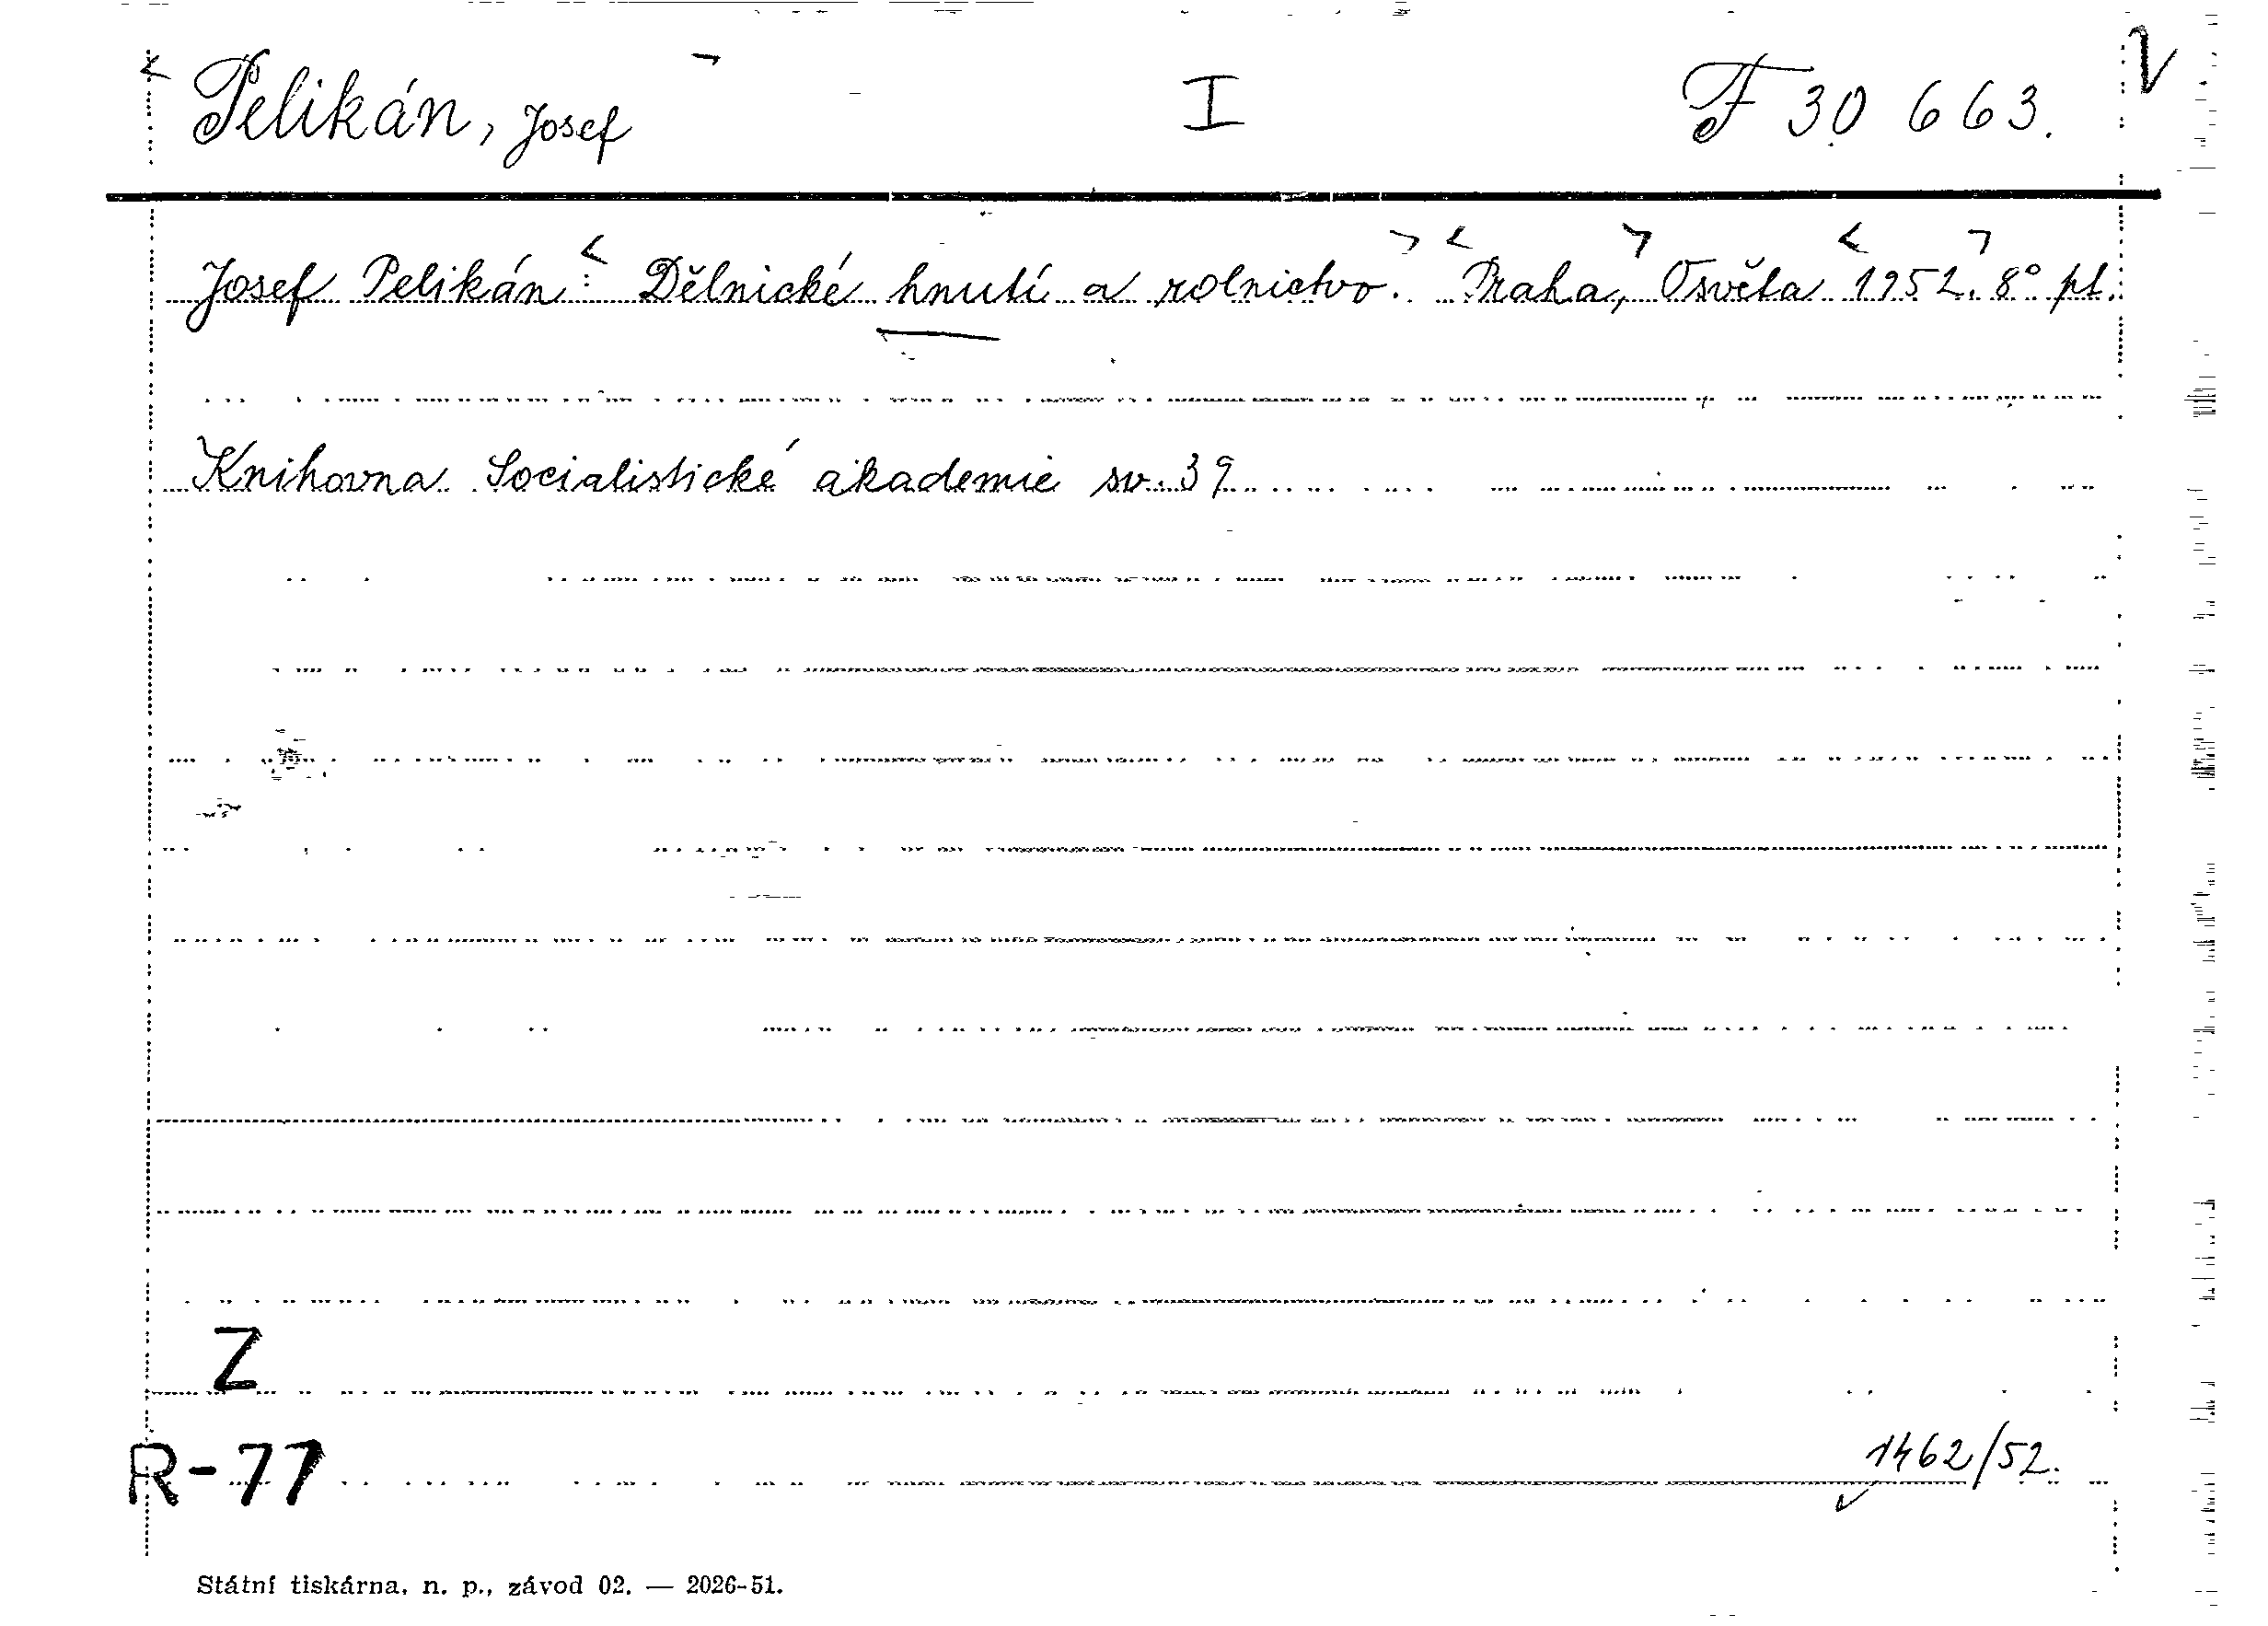 Pelikán, Josef I F 30 663.
Josef Pelikán: Dělnické hnutí a rolnictvo. Praha, Osvěta 1952. 8° pl.
Knihovna Socialistické akademie sv. 39
Z
R-77
1462/52.
Státní tiskárna, n. p., závod 02. — 2026-51.